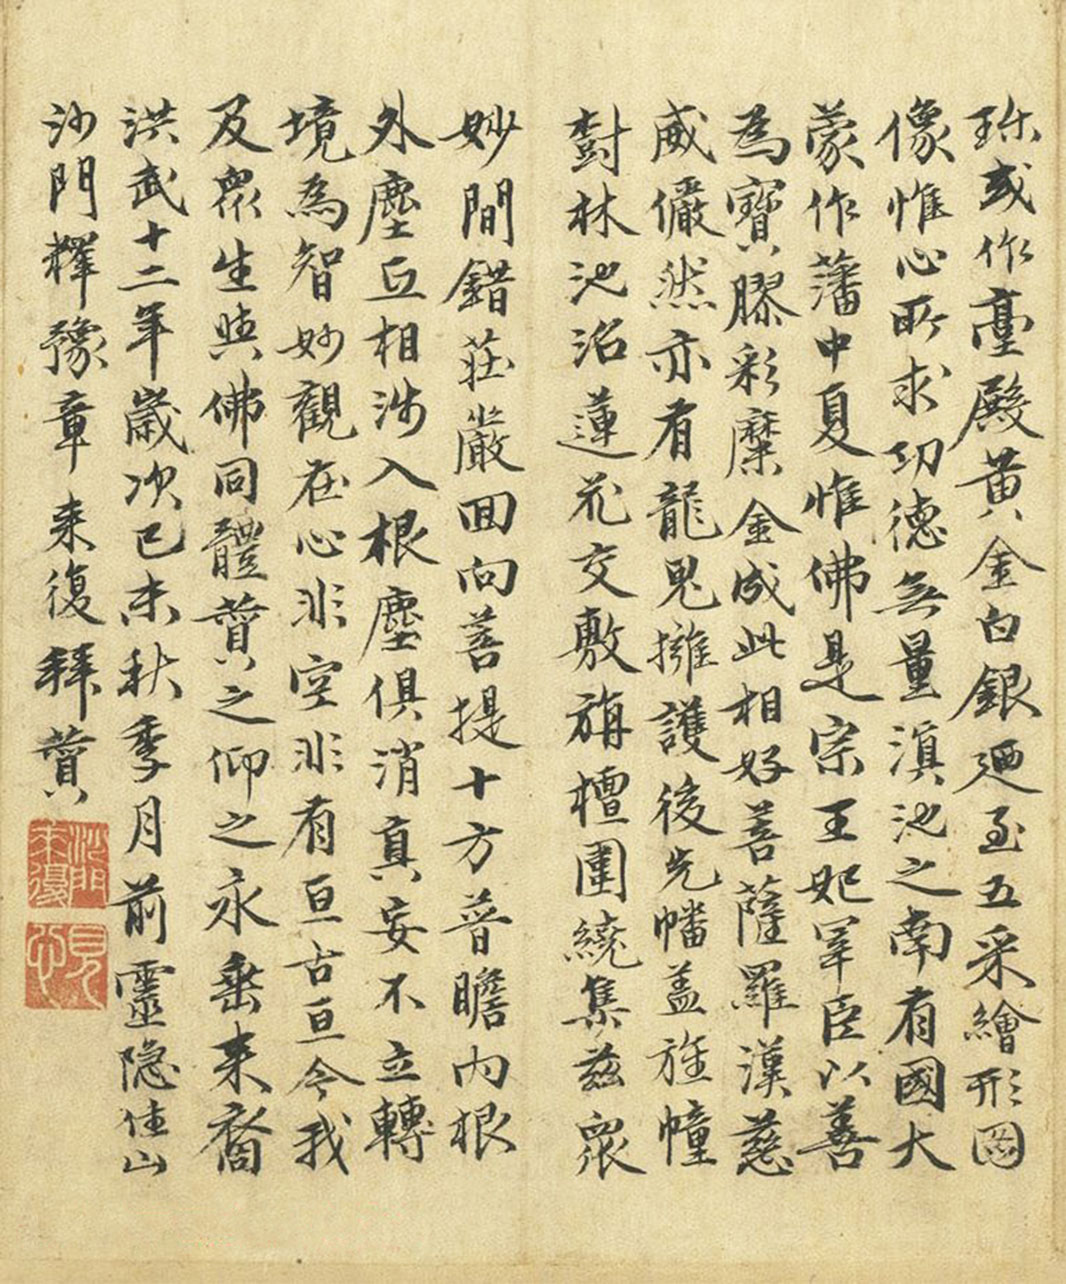 珎或作臺殿黄金白銀廼至五采繪形圖
像惟心所求功德無量滇池之南有國大
蒙作藩中夏惟佛是宗王妃羣臣以善
為寶膠彩糜金成此相好善薩羅漢慈
威儼然亦有龍鬼擁護後先幡盖旌幢
樹林池沼蓮花交敷旃檀圍繞集兹眾
妙間錯莊嚴回向菩提十方普瞻内根
外塵互相涉入根塵俱消真妄不立轉
境為智妙觀在心非空非有亘古亘今我
及眾生與佛同體贊之仰之永垂来裔
洪武十二年歲次已未秋季月前靈隐住山
沙門釋豫章来復拜贊
沙門来復
見心